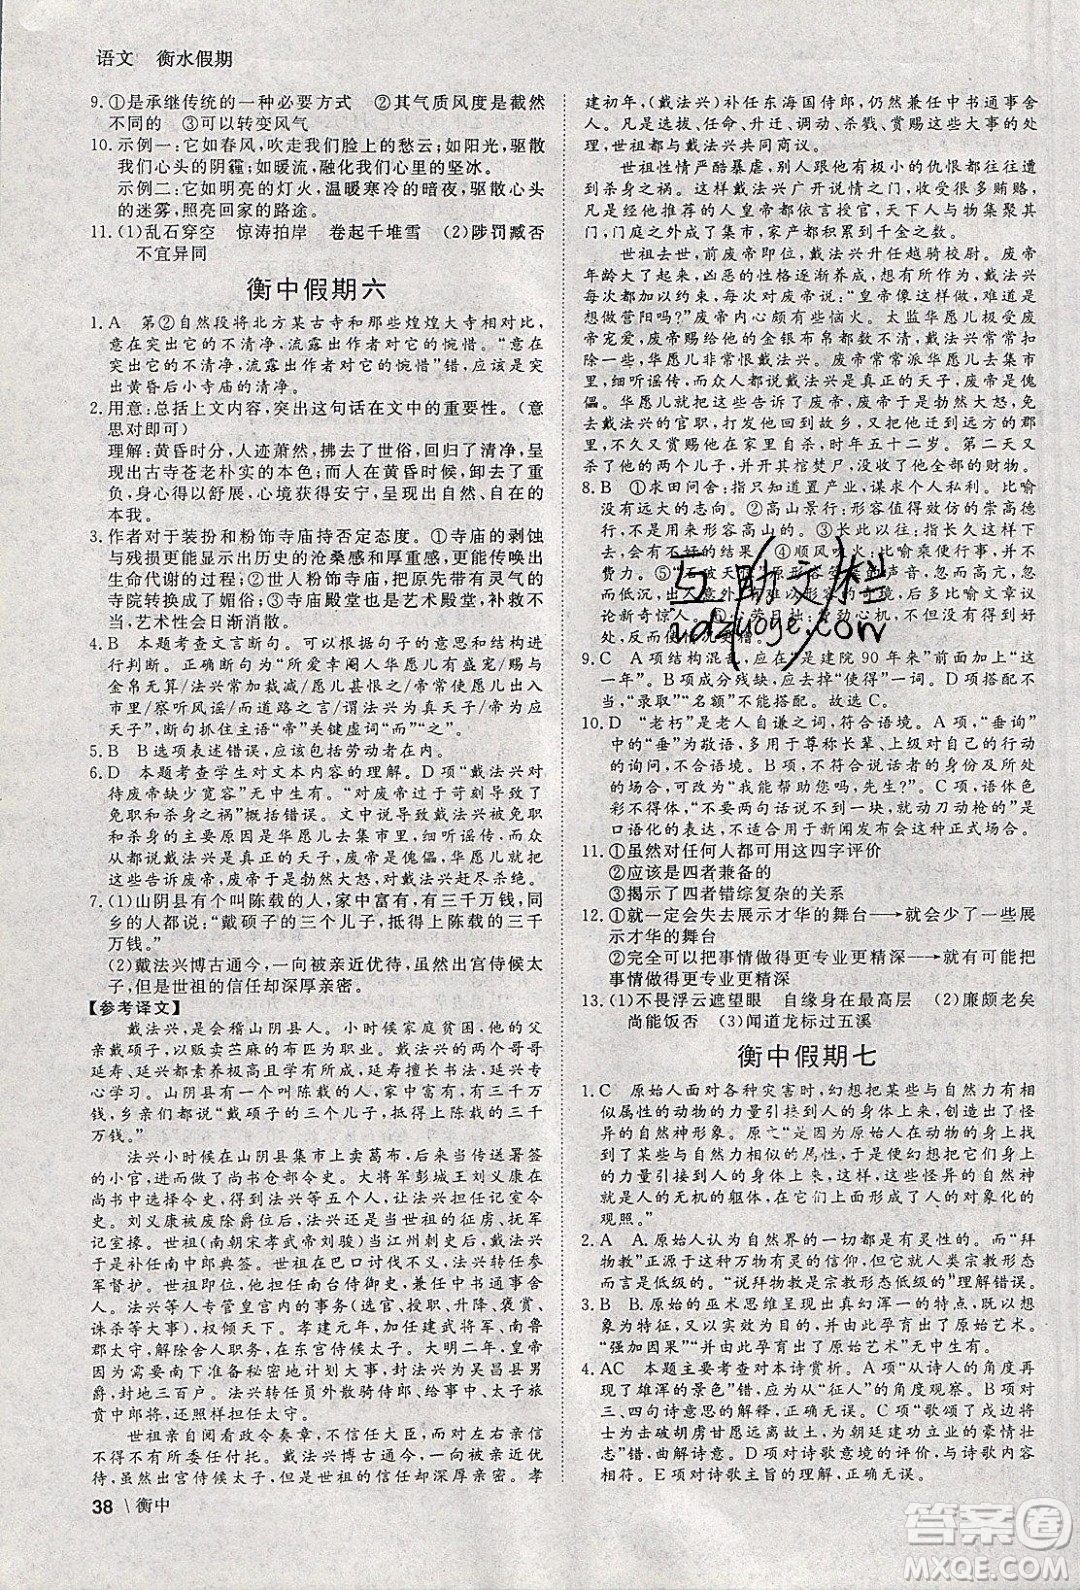 语文 衡水假期
9. ①是承继传统的一种必要方式 ②其气质风度是截然
不同的 ③可以转变风气
10. 示例一:它如春风,吹走我们脸上的愁云;如阳光,驱散
我们心头的阴霾;如暖流,融化我们心里的坚冰。
示例二:它如明亮的灯火,温暖寒冷的暗夜,驱散心头
的迷雾,照亮回家的路途。
11. (1)乱石穿空 惊涛拍岸 卷起千堆雪 (2)陟罚臧否
不宜异同
衡中假期六
1. A 第②自然段将北方某古寺和那些煌煌大寺相对比,
意在突出它的不清净,流露出作者对它的惋惜。“意在
突出它的不清净,流露出作者对它的惋惜”错,应该是突
出黄昏后小寺庙的清净。
2. 用意:总括上文内容,突出这句话在文中的重要性。(意
思对即可)
理解:黄昏时分,人迹萧然,拂去了世俗,回归了自然,
呈现出古寺苍老朴实的本色;我们在黄昏后寺院的宁静
里,身心得以舒展,心境获得安宁,呈现出自然、自在的
本我。
3. 作者对于装扮和粉饰寺庙持否定态度。①寺庙的剥蚀
与残损更能显示出历史的沧桑感和厚重感,引发人们对
生命代谢的过程的敬畏;②世人粉饰寺庙,把原先带有灵气的
寺院改造成了媚俗;③寺庙殿堂也是艺术殿堂,补救不
当,艺术性会日渐消散。
4. B 本题考查文言断句。可以根据句子的意思和结构
进行判断。正确断句为:“所爱幸阉人华愿儿有盛宠/赐
与金帛无算/法兴常加裁减/愿儿甚恨之/帝常使愿儿出入
市里/察听风谣/而道路之言/谓法兴为真天子/帝为应
天子”,断句抓住主语“帝”关键虚词“而”“之”。
5. B B选项表述错误,应该包括劳动者在内。
6. D 本题考查学生对文本内容的理解。D项“戴法兴对
待废帝缺少宽容”无中生有。“对废帝过于苛刻导致了
免职和杀身的灾祸”错。文中说导致戴法兴被免去官职
和杀身的主要原因是华愿儿去集市里,细听谣传,而众
人都说戴法兴是真正的天子,废帝是傀儡,华愿儿就把
这些告诉了废帝,废帝为此勃然大怒,对戴法兴赶尽杀绝。
7. (1)山阴县有个叫陈载的人,家中富有,有三千万钱,同
乡的人都说:“戴硕子的三个儿子,抵得上陈载的三千
万钱。”
(2)戴法兴博古通今,一向被亲近优待,虽然出宫侍候太
子,但是世祖的信任却深厚亲密。
【参考译文】
戴法兴,是会稽山阴县人。小时候家庭贫困,他的父
亲戴硕子,以贩卖苎麻的布匹作为职业。法兴的两个哥哥
延寿、延兴都有所成就,延寿擅长书法,延兴喜欢学习,专
心学习。山阴县有一个叫陈载的人,家中富有,有三千万
钱,乡亲们都说:“戴硕子的三个儿子,抵得上陈载的三千万
钱。”
法兴小时候在山阴县集市上卖葛布,后来担任传送署签
的小官,被提拔做了尚书仓部令史。大将军彭城王刘义康在
尚书中选择令史,找到了法兴等五人,任命法兴为记室令
史。刘义康被废除爵位后,法兴担任世祖的征虏、抚军
记室掾。世祖(南朝宋孝武帝刘骏)当江州刺史,法兴仍然
补任南中郎典签。世祖在巴口讨伐叛逆,法兴与典签戴明宝、
蔡闲都转任参军督护。世祖登基,都担任南台侍御史,一同兼任中书通事舍人。
法兴等人专管皇宫内的事务(选官、授职、升迁、褒赏、
诛杀等大事),权倾天下。孝建元年,加任建武将军、南鲁
郡太守,解除舍人职务,在东宫侍候太子。大明二年,皇帝
因为南下准备秘密地计划大事,赐封法兴为吴昌县男,
食邑三百户。法兴转任员外散骑侍郎,给事中,太子旅贲
中郎将,太守的职务照样担任。
世祖亲自阅看政令奏章,不信任大臣,而心腹耳目,
不得不有所委任付托。戴法兴博古通今,一向被亲近优
待,虽然出宫侍候太子,但是世祖的信任却深厚亲密。孝
建初年,(戴法兴)补任东海国侍郎,仍然兼任中书通事舍
人。凡是选拔、任命、升迁、调动、杀戮、赏赐这些大事的处
理,世祖都与戴法兴共同商议。
世祖性情严酷暴虐,别人跟他有极小的仇恨也会受
到杀身之祸。这样戴法兴广开说情之门,收取很多贿赂,
凡是经他推荐的人皇帝依言授官,天下人与物集聚其门,
门庭之外成了集市,家产都累积到千金之数。
世祖去世,前废帝即位,戴法兴升任越骑校尉。废帝
年龄渐大,凶恶的性格逐渐养成,想要有所作为,法兴总是
加以制约,常对废帝说:“皇帝像这样做,是
想做营阳吗?”废帝内心颇有些恼火。太监华愿儿极受废
帝宠爱,废帝赐给他的金银布帛都无法计算,法兴常常加
以裁减,华愿儿非常恨戴法兴。废帝常派华愿儿去集市里,
细听谣传,而众人都说戴法兴是真正的天子,废帝是傀
儡。华愿儿就把这些告诉了废帝,废帝于是勃然大怒,免
去戴法兴的官职,打发他回到故乡,又迁他到远方的郡
里,不久又赐他在家里自杀,时年五十二岁。第二天又
杀了他的两个儿子,并開棺焚尸,没收了他的财产。
8. B ①求田问舍:指只知道置产业,谋求个人私利。比喻
没有远大的志向。②高山景行:形容值得效仿的崇高德
行,不能用来形容高山的。③长此以往:指长久这样下去,
多指不好的结果。④顺风吹火:比喻乘便行事,并不
费力。⑤石破天惊:形容箜篌的声音,忽而高亢,忽
而低沉,出人意外有难以形容的奇境。后多比喻文章议
论新奇惊人。
9. C A项结构混乱,应在“是建院90年来”前面加上“这
一年”。B项成分残缺,缺少“使”一词。D项搭配不
当,“录取”“名额”不能搭配。故选C。
10. D “老朽”是老人自谦之词,符合语境。A项,“垂询”
中的“垂”为敬语,多用于尊称长辈、上级对自己的行动
的询问,不合语境。B项不符合老者的身份及所处的
语境,可改为“我能帮助您吗,先生?”。C项,语体色
彩不得体,“不要两句话说不到一块,就动刀动枪的”是
口语化的表达,不适合用于新闻发布会这种正式场合。
11. ①虽然对任何人都可用这四字评价
②应该是四者兼备的
③揭示了四者错综复杂的关系
12. ①就一定会失去展示才华的舞台——→就没有了展
示才华的舞台
②完全可以把事情做得更专业更精深——→就可能把
事情做得更专业更精深
13. (1)不畏浮云遮望眼 自缘身在最高层 (2)廉颇老矣
尚能饭否 (3)闻道龙标过五溪
衡中假期七
1. C 原始人面对各种灾害时,幻想把某些与自然力有相
似属性的动物的力量引接到人的身体上来,创造出了怪
异的自然神形象。原文是因为原始人在动物的身上找
到了与某些自然力相似的属性,于是便幻想把这些动物
的力量引接到人的身体上来,这些怪异的自然神,既是
人的无机的躯体,又是人的人的对象化的
观照。”
2. A A.原始人认为自然界的一切都是有灵的,而“拜
物教”正源于这种万物有灵的信仰,它比人类宗教形态
而言是低级的。“说拜物教是宗教形态低级的”理解错误。
3. B B.原始的巫术思维呈现出真幻浑一的特点,既而
由此孕育出了原始艺术,并因此孕育出了原始艺术。
“强加因果”,“也由此孕育出了原始艺术”无中生有。
4. AC 本题主要考查对本诗赏析。A项“从诗人的角度再
现了雄浑的景色”错,应是从“征人”的角度观察。B项对
三、四句诗意思的解释,正确无误。C项“歌颂了戍边将
士为击破胡虏甘愿远离故土,为朝廷建功立业的豪情壮
志”错,曲解诗意。D项对诗歌意境的评价,与诗歌内容
相符。E项对诗歌主旨的理解,正确无误。
38 \ 衡中
互助文档
hdzuoye.com
答案圈
MXQE.COM